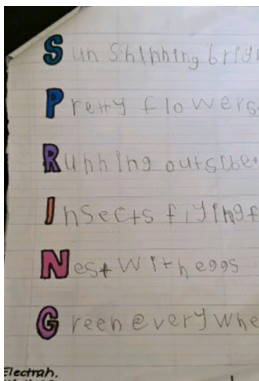 Sun Shinning brig
Pretty flowers
Running outside
Insects flying f
Nest with eggs
Green everywhe
Electrah.